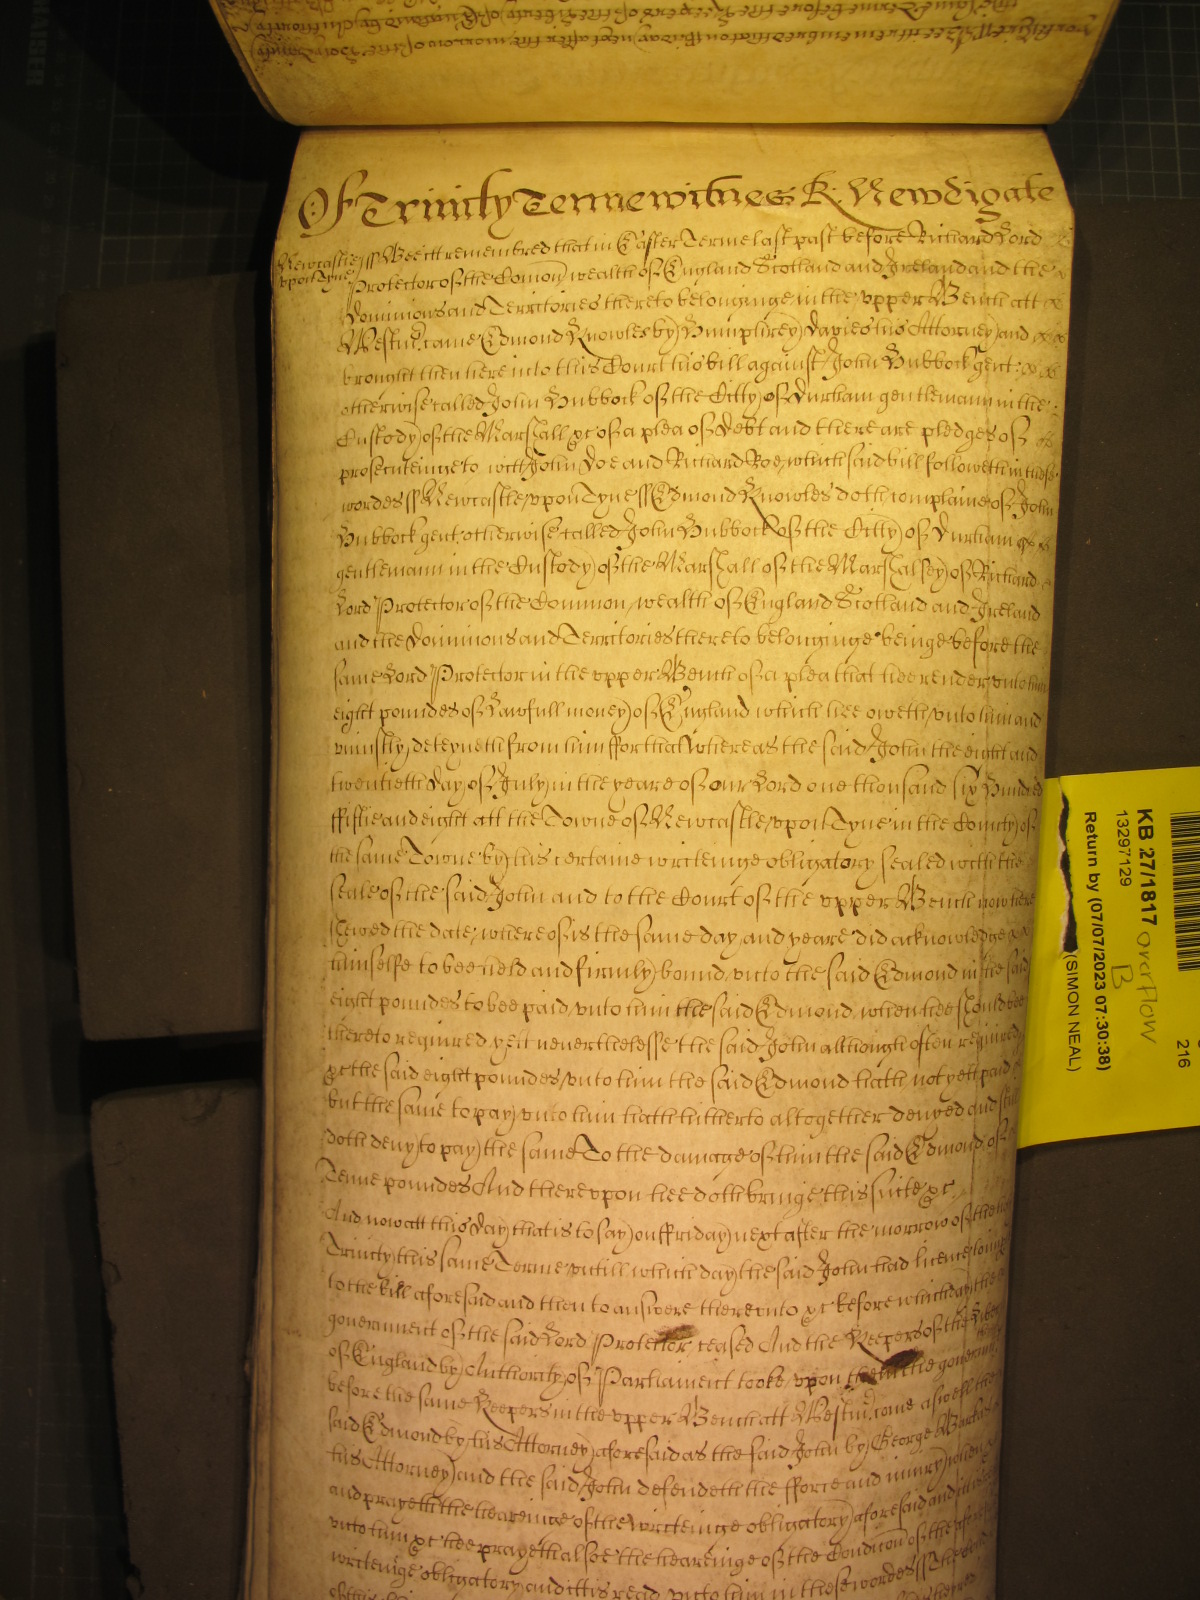 Of Trinity Terme witnes R: Newdigate
Newcastle
vpon Tyne
ss Bee itt remembred that in Easter Terme last past before Richard Lord
Protector of the Comon wealth of England Scotland and Ireland and the
Dominions and Territories thereto belonginge in the vpper Bench att
Westm. came Edmond Knowles by Humphrey Davies his Attorney and
brought then here into this Court his bill against John Hubbock gent:
otherwise called John Hubbock of the Citty of Durham gentlemann in the
Custody of the Marshall &c of a plea of Debt and there are pledges of
prosecuteinge to witt John Doe and Richard Roe, which said bill followeth in these
wordes ss Newcastle vpon Tyne ss Edmond Knowles doth complaine of John
Hubbock gent: otherwise called John Hubbock of the Citty of Durham
gentlemann in the Custody of the Marshall of the Marshalsey of Richard
Lord Protector of the Common wealth of England Scotland and Ireland
and the Dominions and Territories thereto belonginge beinge before the
same Lord Protector in the vpper Bench of a plea that hee render vnto him
eight poundes of Lawfull money of England which hee oweth vnto him and
vniustly deteyneth from him ffor that Whereas the said John the eight and
twentieth day of July in the yeare of our Lord one thousand six Hundred
ffiftie and eight att the Towne of Newcastle vpon Tyne in the County of
the same Towne by his certaine writeinge obligatory sealed with the
seale of the said John and to the Court of the vpper Bench now here
shewed the date whereof is the same day and yeare did acknowledge
himselfe to bee held and firmly bound vnto the said Edmond in the said
eight poundes to bee paid vnto him the said Edmond when hee should bee
thereto required yett neverthelesse the said John although often required
&c the said eight poundes vnto him the said Edmond hath not yett paid
but the same to pay vnto him hath hitherto altogether denyed and still
doth deny to pay the same To the damage of him the said Edmond of
Tenne poundes And therevpon hee doth bringe this suite &c
And now att this day that is to say on ffriday next after the morrow of the holy
Trinity this same Terme vntill which day the said John had licence to imp
to the bill aforesaid and then to answere therevnto &c before which day the
government of the said Lord Protector ceased And the Keepers of the Liber
of England by Authority of Parliament tooke vpon them the govern
before the same Keepers in the vpper Bench att Westm. come aswell the
said Edmond by his Attorney aforesaid as the said John by George
his Attorney and the said John defendeth the fforce and iniury when &c
and prayeth the heareinge of the writeinge obligatory aforesaid and itt is
vnto him &c hee prayeth alsoe the heareinge of the Condicion of the afores
writeinge obligatory and itt is read vnto him in these wordes ss The
KB 27/1817 overflow
B
13297129
Return by (07/07/2023 07:30:38)
(SIMON NEAL)
216